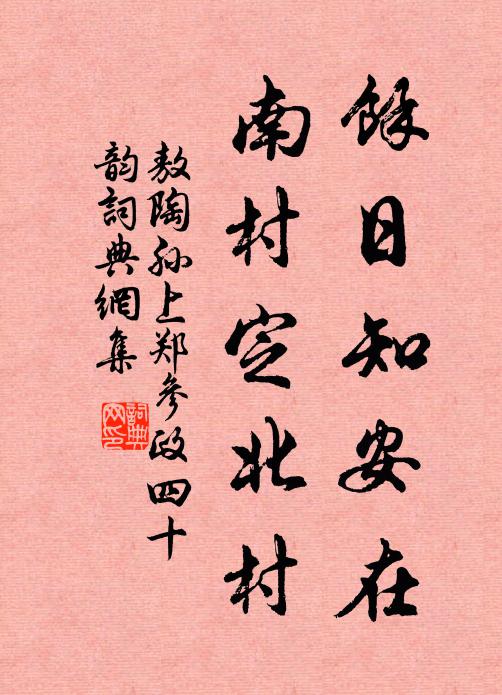 餘日知安在
南村定北村
敖陶孙上郑參政四十
韵詞典網集
詞典
网印